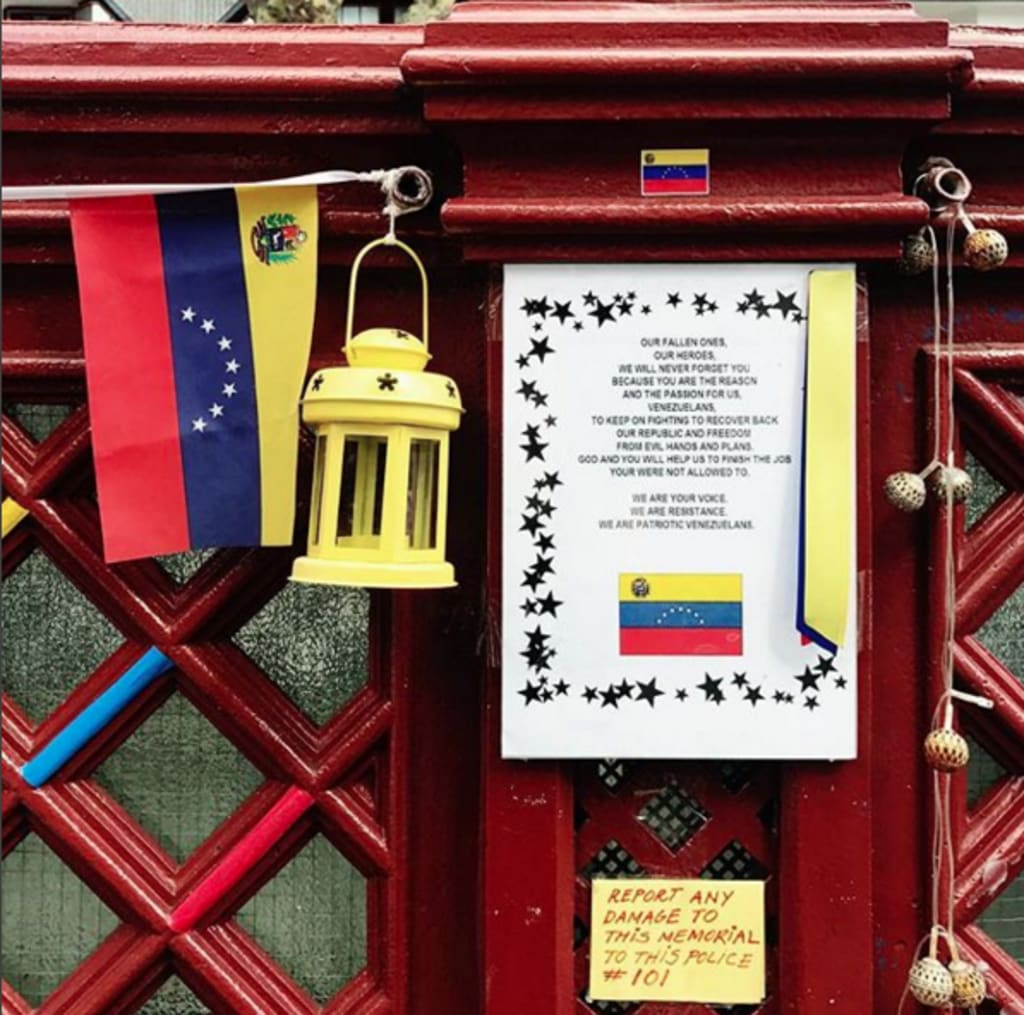 OUR FALLEN ONES,
OUR HEROES,
WE WILL NEVER FORGET YOU
BECAUSE YOU ARE THE REASON
AND THE PASSION FOR US,
VENEZUELANS,
TO KEEP ON FIGHTING TO RECOVER BACK
OUR REPUBLIC AND FREEDOM
FROM EVIL HANDS AND PLANS.
GOD AND YOU WILL HELP US TO FINISH THE JOB
YOUR WERE NOT ALLOWED TO.
WE ARE YOUR VOICE.
WE ARE RESISTANCE.
WE ARE PATRIOTIC VENEZUELANS.
REPORT ANY
DAMAGE TO
THIS MEMORIAL
TO THIS POLICE
# 101